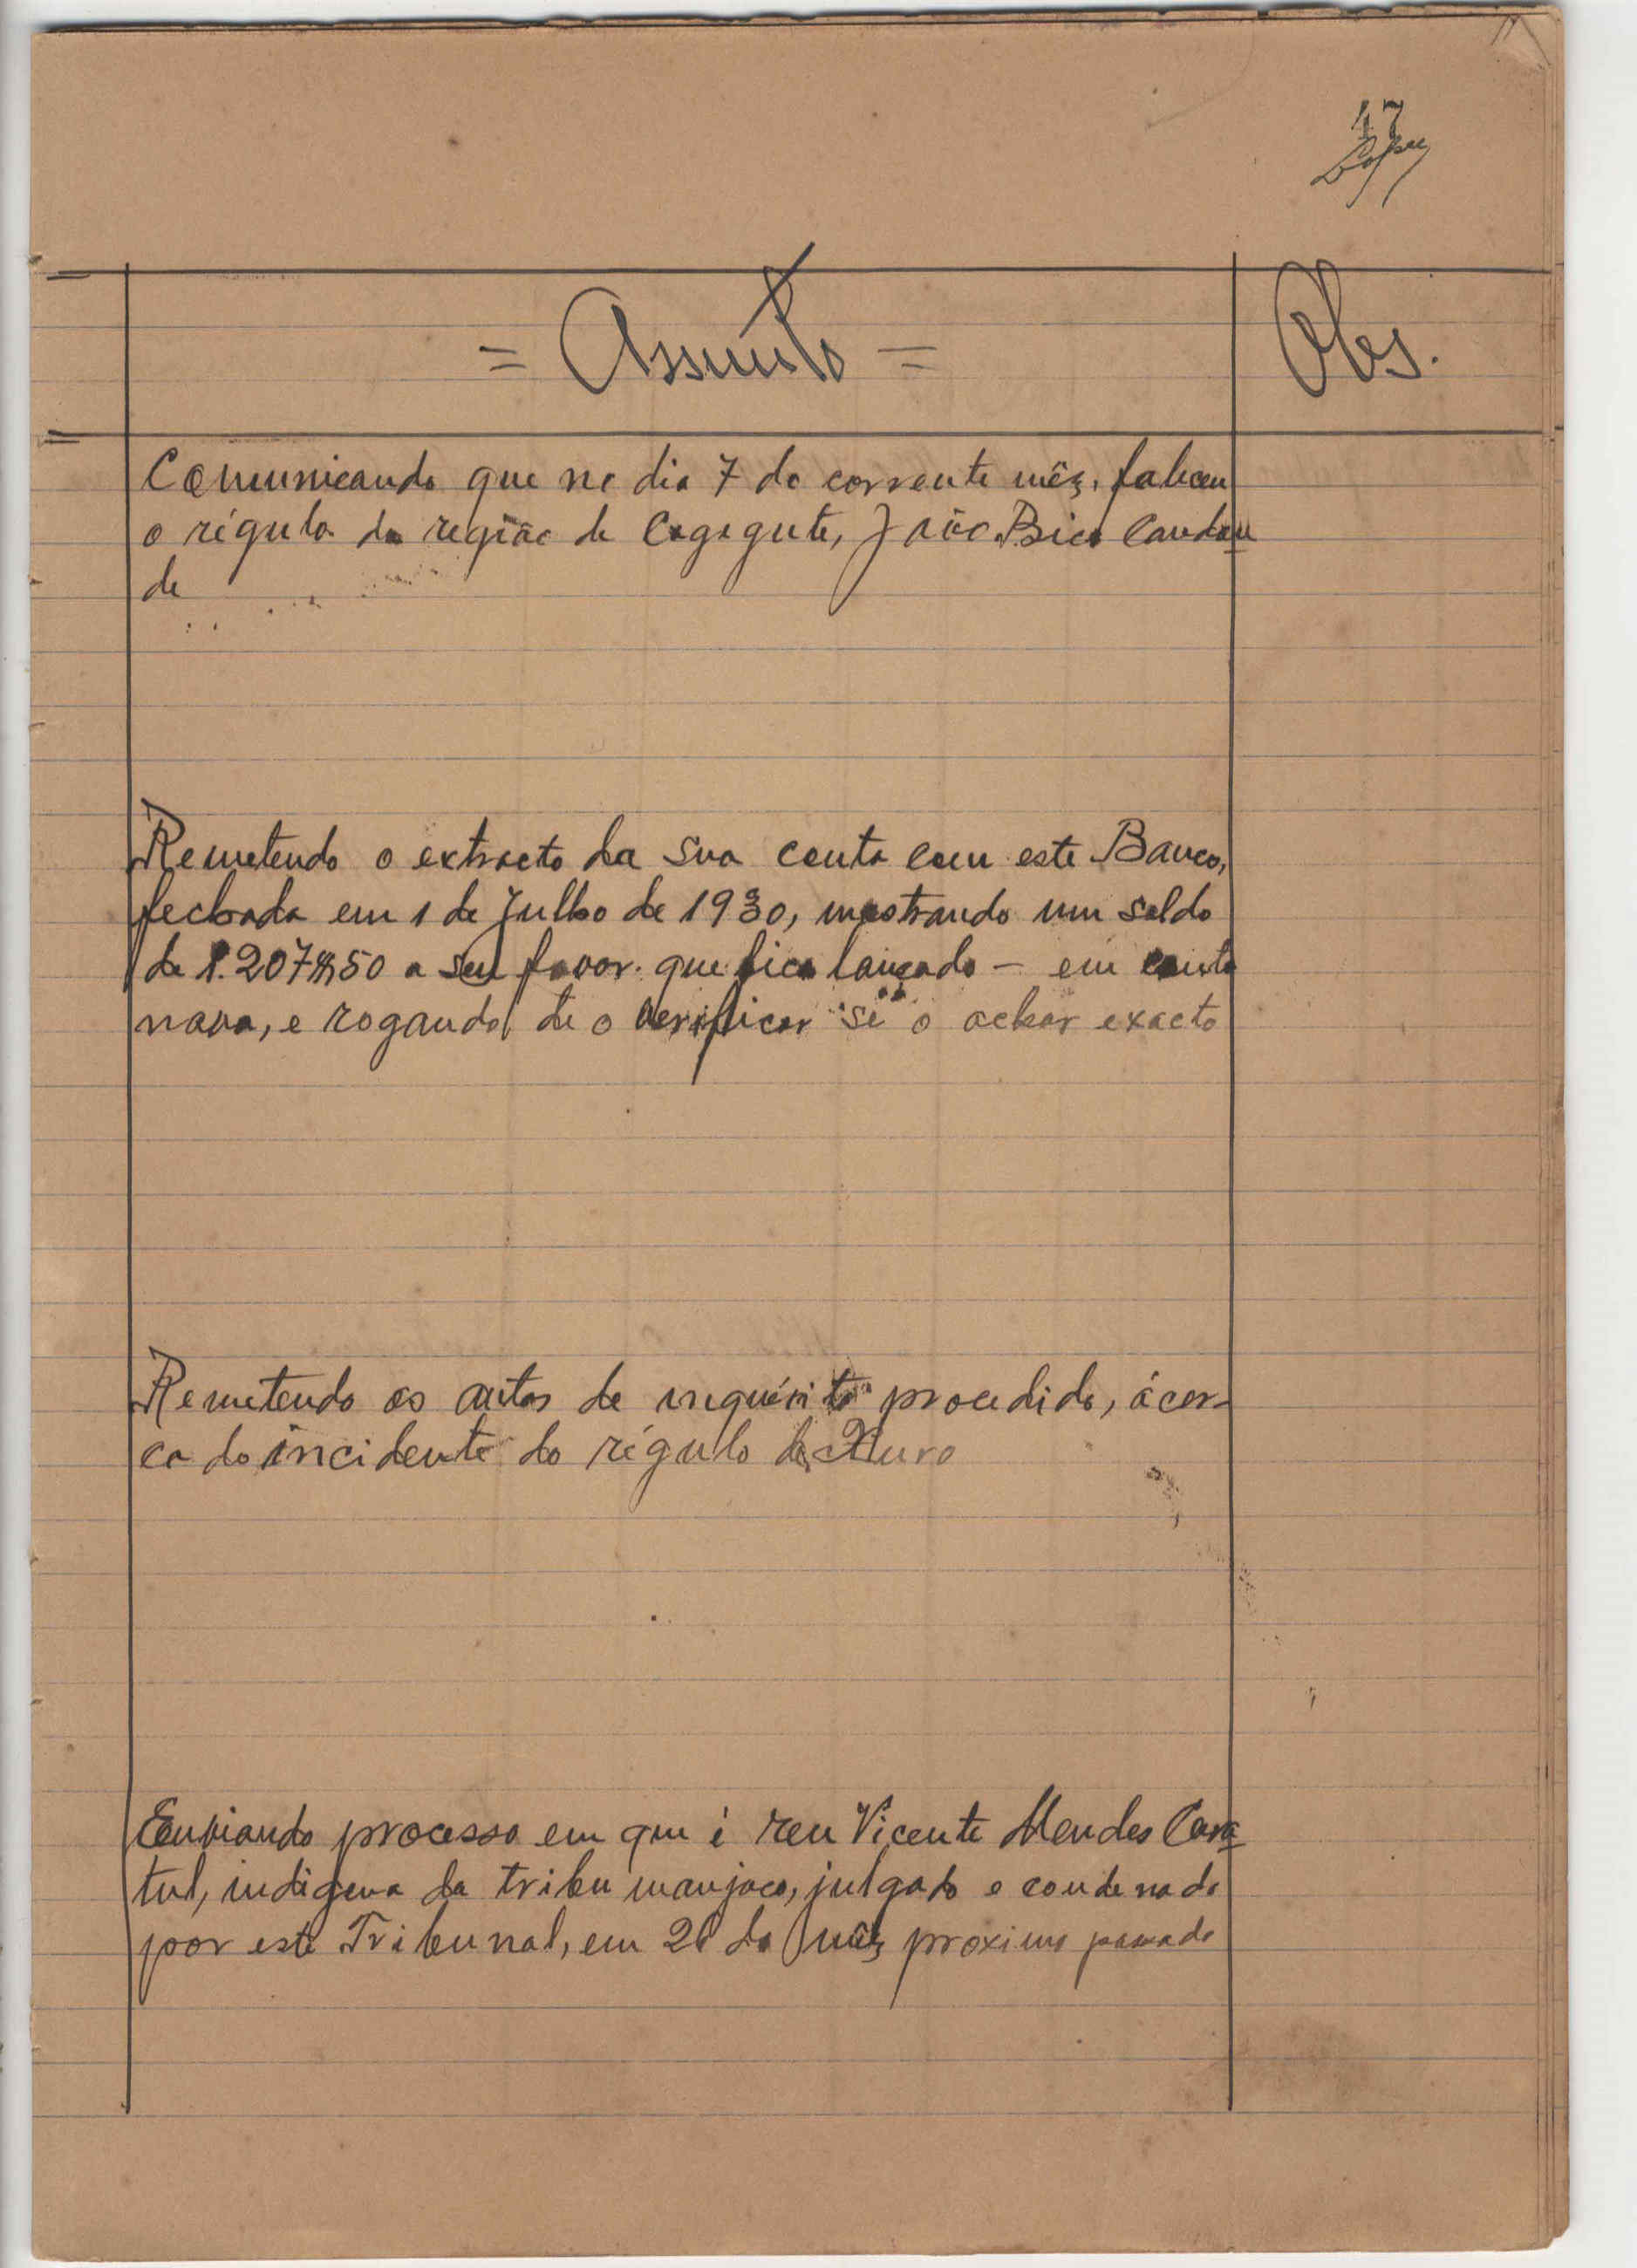 17
= Assunto =
Obs.
Comunicando que no dia 7 do corrente mês, faleceu
o régulo da região de Cagegute, João Bico Candau
de
Remetendo o extracto da sua conta com este Banco,
fechada em 1 de Julho de 1930, mostrando um saldo
de 1.207$50 a seu favor que fica lançado - em conta
nova, e rogando de o verificar se o achar exacto
Remetendo os autos de inquérito procedido, ácer-
ca do incidente do régulo de
Enviando processo em que é reu Vicente Mendes Cara
tul, indigena da tribu manjaco, julgado e condenado
por este Tribunal, em 20 do mês proximo passado